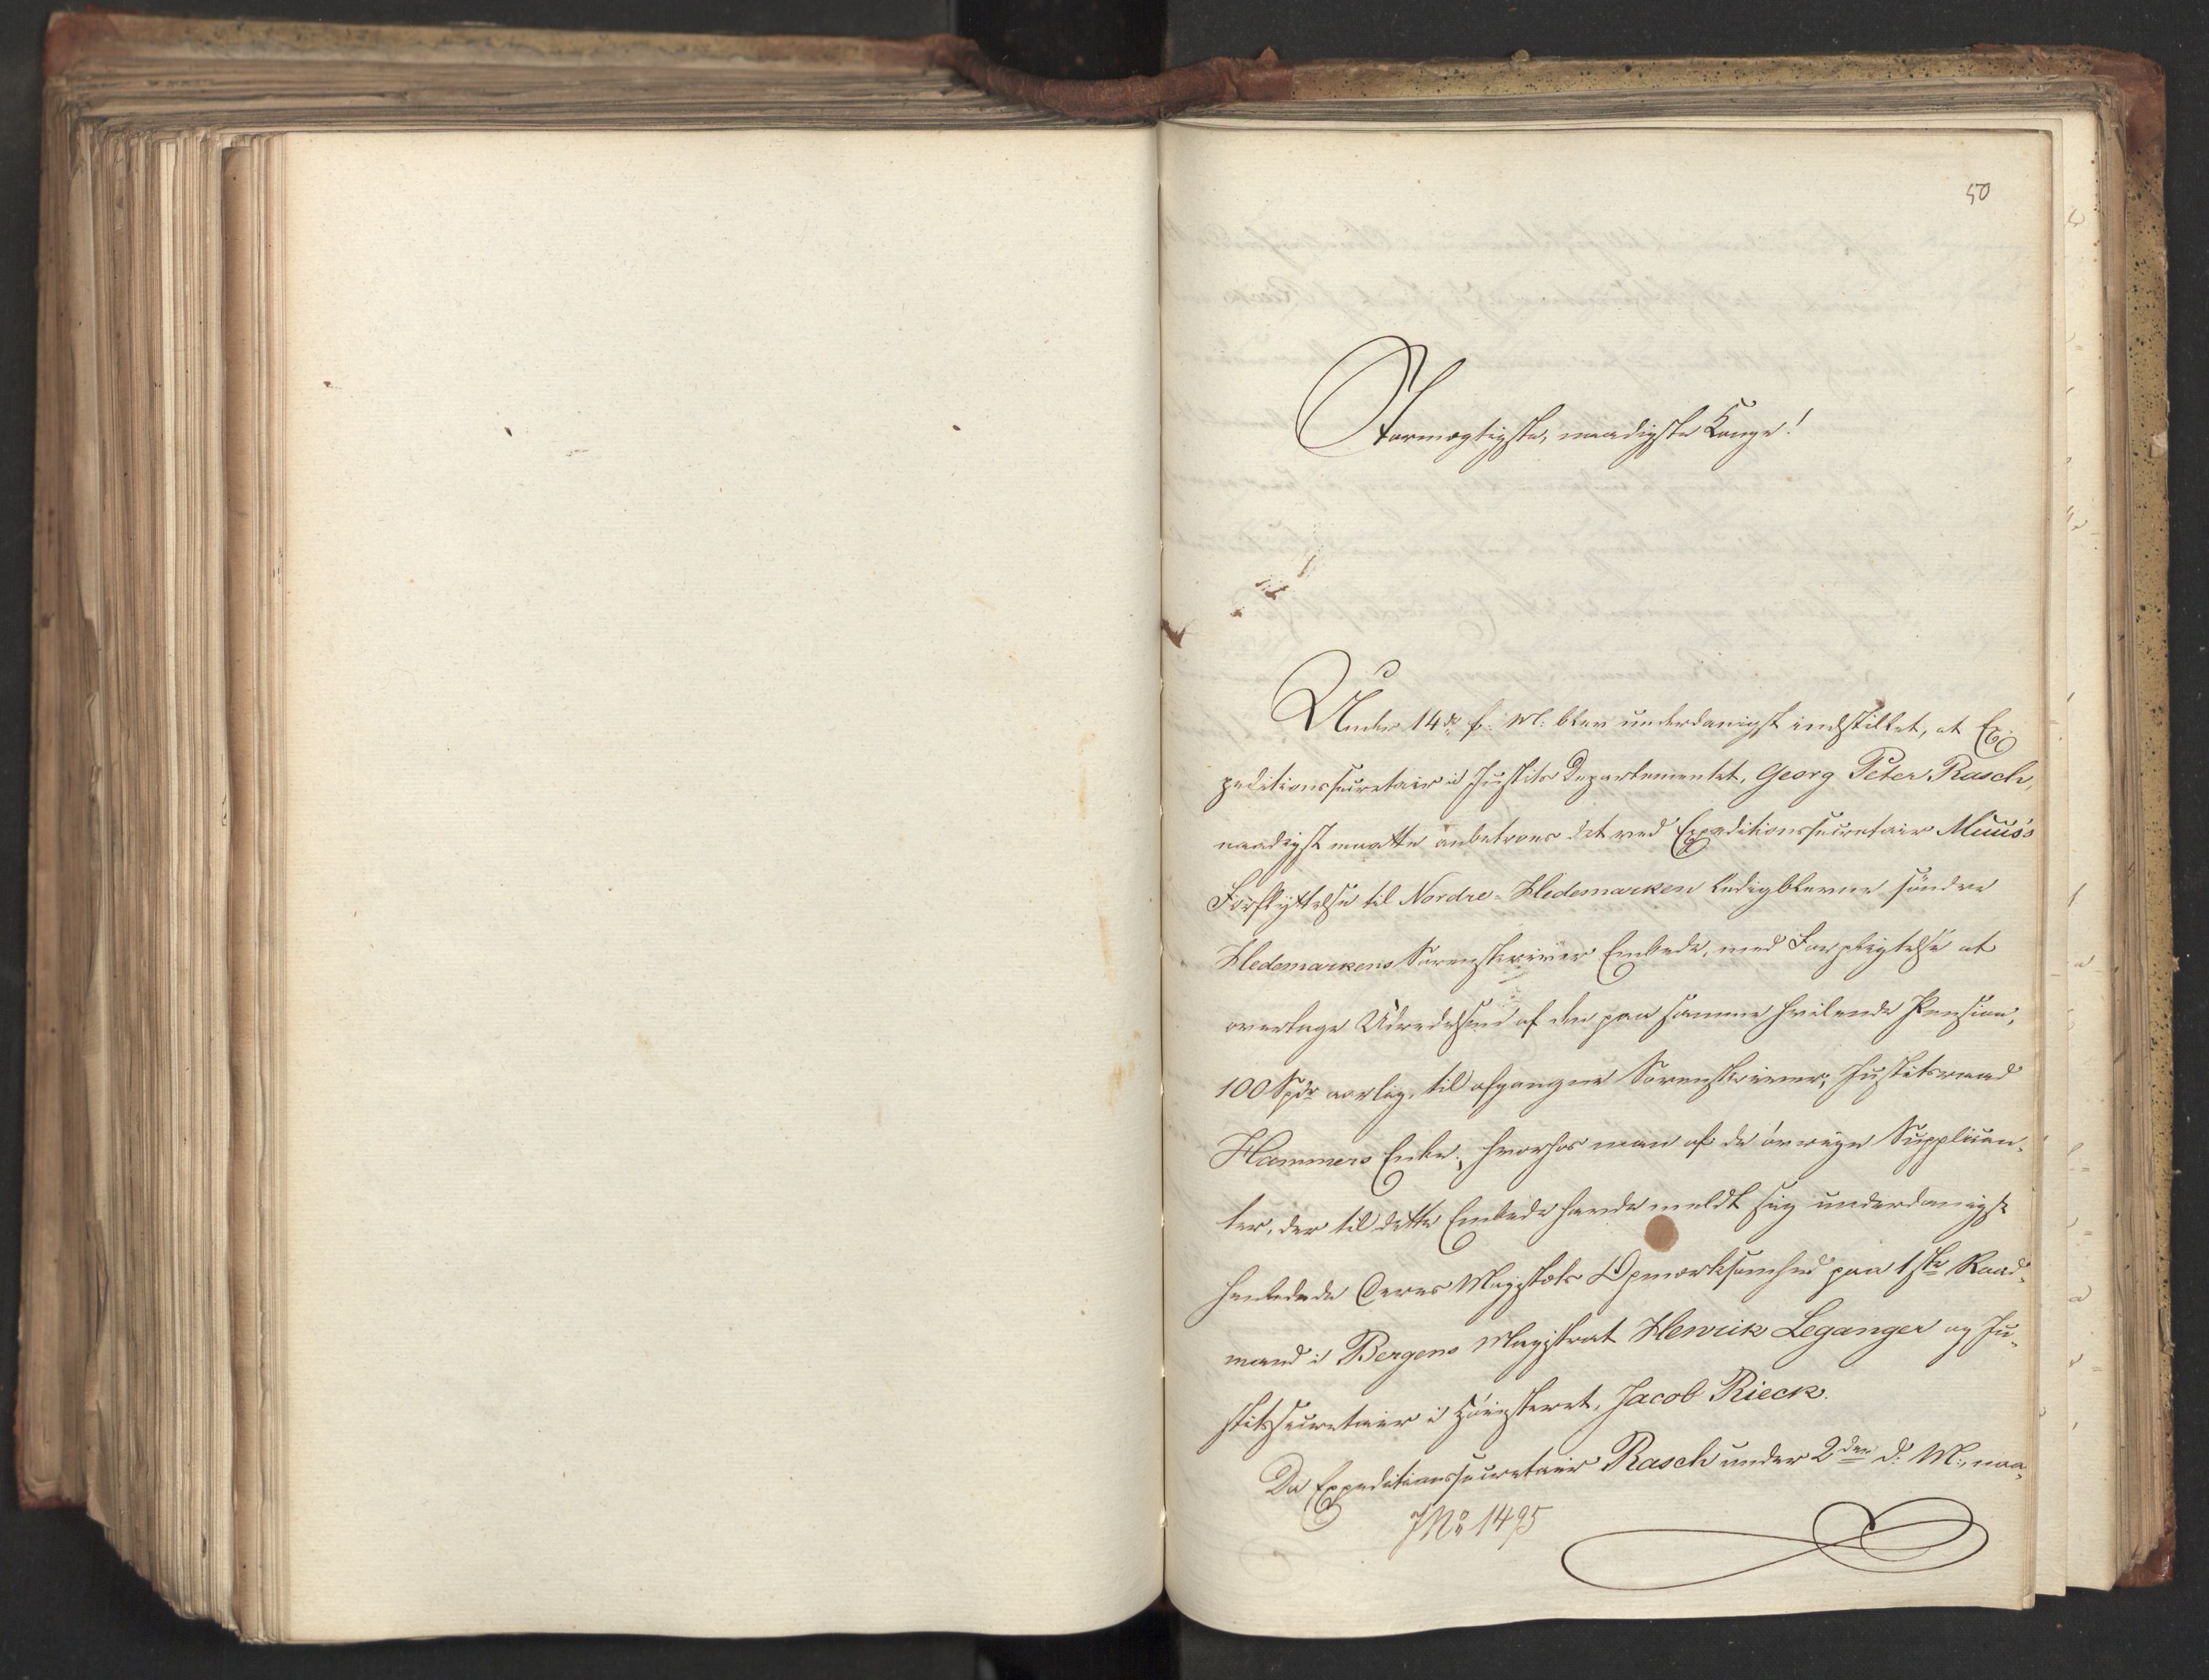 50
Stormægtigste, naadigste Konge!
Under 14de f: M: blev underdanigst indstillet, at Ex-
peditionssecretair i Justits Departementet, Georg Peter Rasch,
naadigst maatte anbetroes det ved Expeditionssecretair Muus's
Forflyttelse til Nordre-Hedemarken ledigblevne søndre
Hedemarkens Sorenskriver Embede, med Forpligtelse at
overtage Udredelsen af den paa samme hvilende Pension,
100 Spdr aarlig, til afgangne Sorenskriver, Justitsraad
Hammers Enke; hvorhos man af de øvrige Supplican-
ter, der til dette Embede havde meldt sig underdanigst
henledede Deres Majestæts Opmærksomhed paa 1ste Raad-
mand i Bergens Magistrat Henrik Leganger og Ju-
stitssecretair i Høiesteret, Jacob Rieck.
Da Expeditionssecretair Rasch under 2den d: M:, naa-
JNo 1495